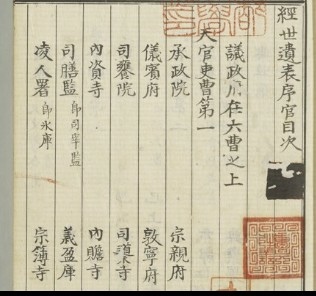 經世遺表序官目次
議政府在六曹之上
天官吏曹第一
承政院 宗親府
儀賓府 敦寧府
司饔院 司䆃寺
內資寺 內贍寺
司膳監 即司宰監 義盈庫
凌人署 即氷庫 宗簿寺